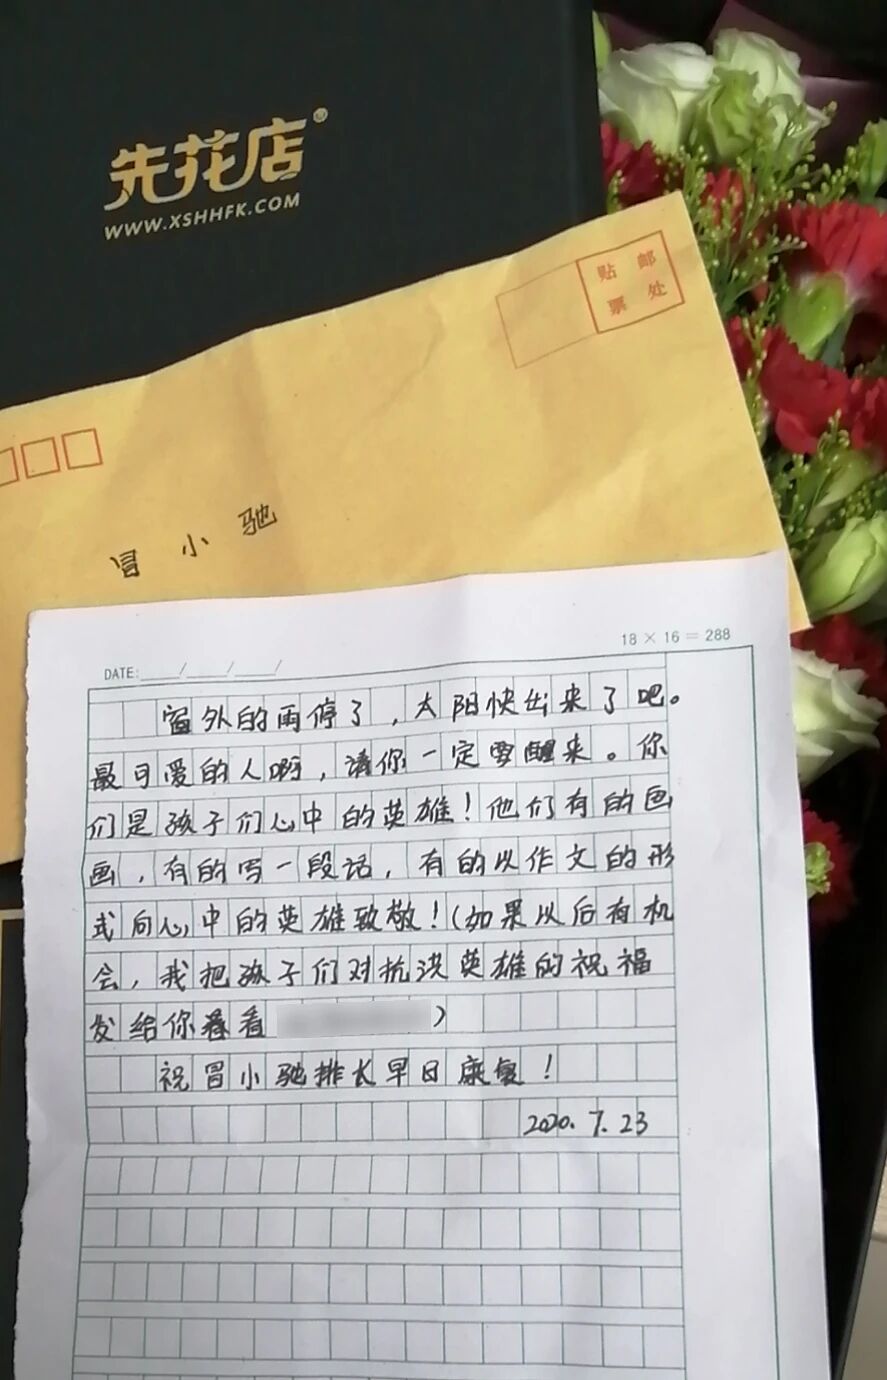 先花店®
WWW.XSHHFK.COM
贴 邮
票 处
冒小驰
18 × 16 = 288
DATE:____/____/____/
窗外的雨停了，太阳快出来了吧。
最可爱的人啊，请你一定要醒来。你
们是孩子们心中的英雄！他们有的画
画，有的写一段话，有的以作文的形
式向心中的英雄致敬！（如果以后有机
会，我把孩子们对抗洪英雄的祝福
发给你看看）
祝冒小驰排长早日康复！
2020.7.23